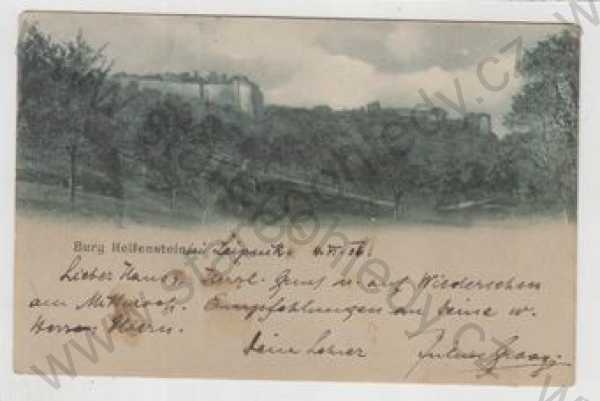 Burg Helfenstein bei Leipnik
Lieber Hans. Herzl. Gruß u. auf Wiedersehen
am Mittwoch. Empfehlungen an Deine w.
Herren Eltern.
Dein Lehrer Julius
www.stare-pohledy.cz